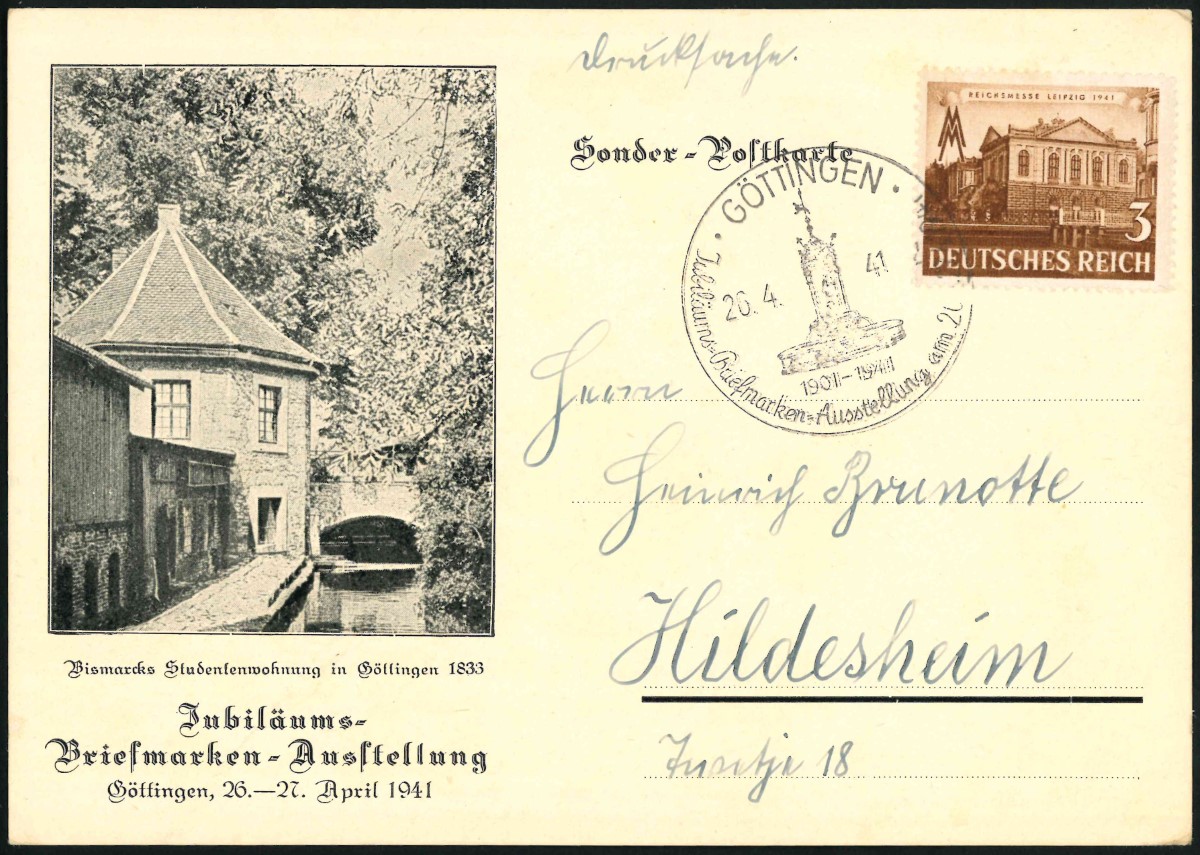 Drucksache.
Sonder-Postkarte
REICHSMESSE LEIPZIG 1941
3
DEUTSCHES REICH
· GÖTTINGEN ·
26.4. 41
1901-1941
Jubiläums-Briefmarken-Ausstellung am 2
Herrn
Heinrich Brunotte
Hildesheim
18
Bismarcks Studentenwohnung in Göttingen 1833
Jubiläums-
Briefmarken-Ausstellung
Göttingen, 26.—27. April 1941